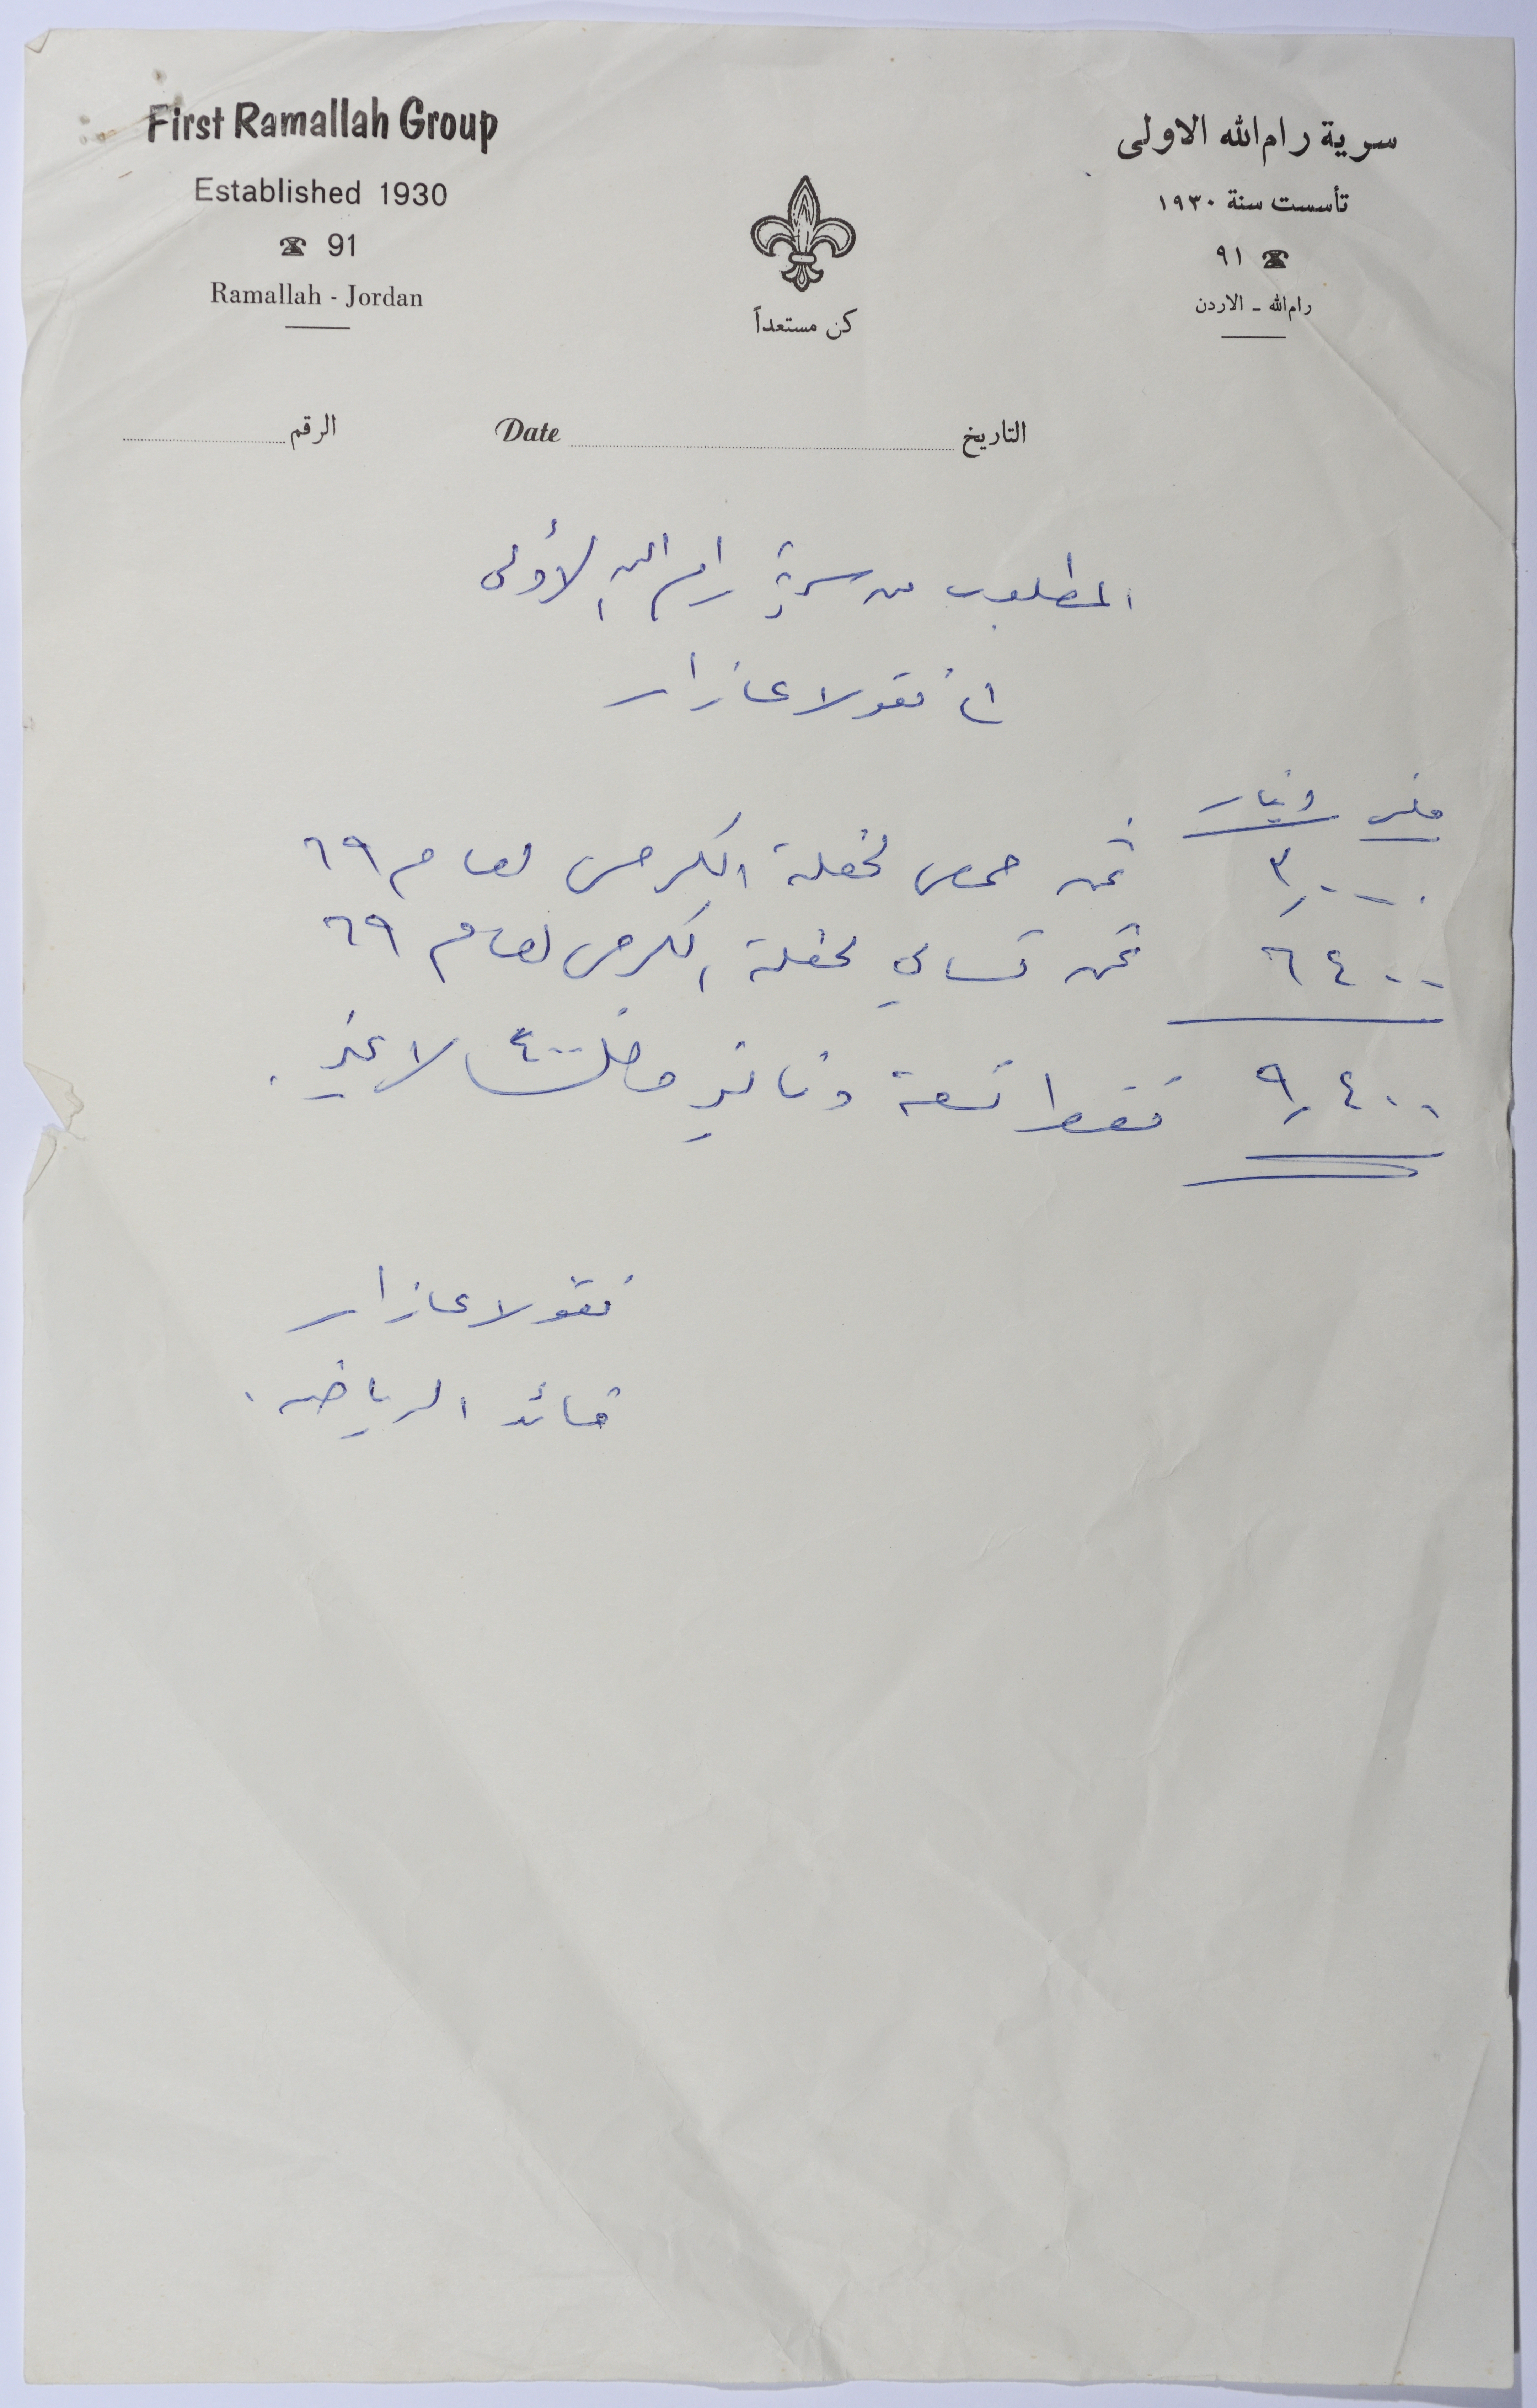 First Ramallah Group
Established 1930
☎ 91
Ramallah - Jordan
سرية رام الله الاولى
تأسست سنة ١٩٣٠
☎ ٩١
رام الله - الاردن
كن مستعداً
التاريخ Date
الرقم
المطلوب من سرية رام الله الأولى
نقولا عازار
فلس دينار
٣٫٠٠٠ ثمن حمص لحفلة الكرمس لعام ٦٩
٦٤٠٠ ثمن تسالي لحفلة الكرمس لعام ٦٩
٩٫٤٠٠ فقط تسعة دنانير و ٤٠٠ فلسا لا غير.
نقولا عازار
قائد الرياضه.